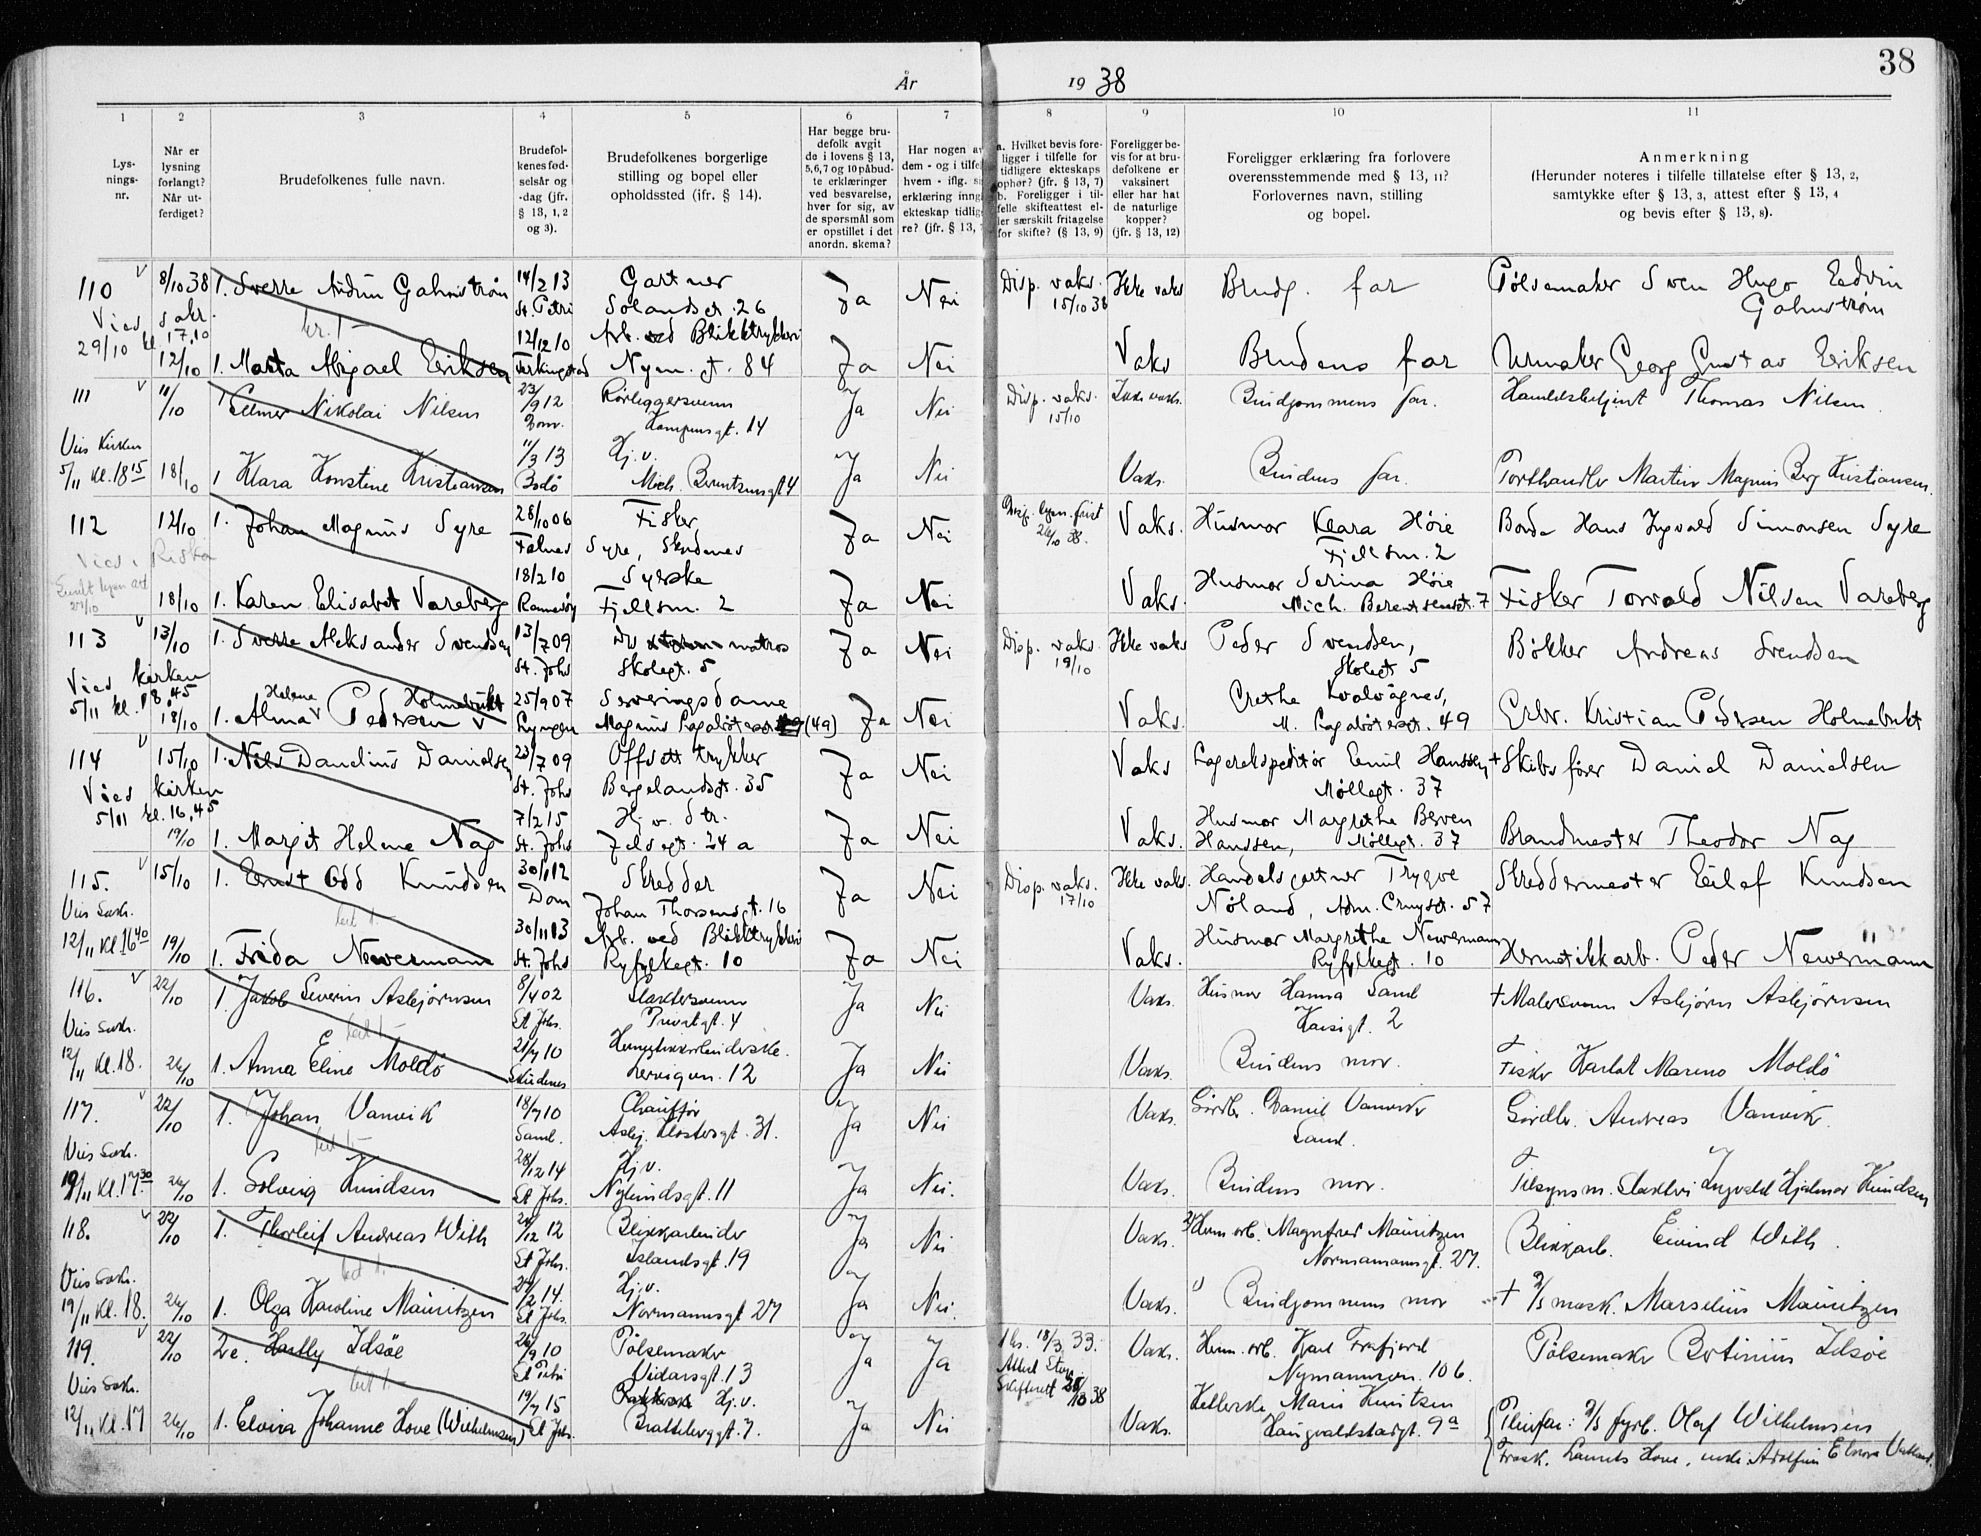 38
År 1938
1 2 3 4 5 6 7 8 9 10 11
Lys-
nings-
nr.
Når er
lysning
forlangt?
Når ut-
ferdiget?
Brudefolkenes fulle navn.
Brudefol-
kenes fød-
selsår og
-dag (jfr.
§ 13, 1, 2
og 3).
Brudefolkenes borgerlige
stilling og bopel eller
opholdssted (jfr. § 14).
Har begge bru-
defolk avgit
de i lovens § 13,
5,6,7 og 10 påbud-
te erklæringer
ved besvarelse,
hver for sig, av
de spørsmål som
er opstillet i det
anordn. skema?
Har nogen a
dem - og i tilfe
hvem - iflg. s
erklæring inng
ekteskap tidlig
re? (jfr. § 13,
a. Hvilket bevis fore-
ligger i tilfelle for
tidligere ekteskaps
ophør? (jfr. § 13, 7)
b. Foreligger i til-
felle skifteattest el-
ler særskilt fritagelse
for skifte? (§ 13, 9)
Foreligger be-
vis for at bru-
defolkene er
vaksinert
eller har hat
de naturlige
kopper?
(jfr. § 13, 12)
Foreligger erklæring fra forlovere
overensstemmende med § 13, 11?
Forlovernes navn, stilling
og bopel.
Anmerkning
(Herunder noteres i tilfelle tillatelse efter § 13, 2,
samtykke efter § 13, 3, attest efter § 13, 4
og bevis efter § 13, 8).
110 8/10 38 1. Sverre 14/2 13 Gartner Ja Nei Disp. vaks. Ikke vaks Brudg. far Pølsemaker Sven Hugo Edvin
Vies sakr. St. Petri Solandsg. 26 15/10 38
29/10 kl. 17,10 kr. 1- 12/12 10 Arb. ved Blikktrykkeri
12/10 1. Marta Abigael Eriksen Ferkingstad Nym. gt. 84 Ja Nei Vaks Brudens far Urmaker Georg Gustav Eriksen
111 11/10 1 Elmer Nikolai Nilsen 23/9 12 Rørleggersvenn Ja Nei Disp. vaks. Brudgommens far. Thomas Nilsen
Kampensgt. 14 15/10
Vies Kirken 11/3 13 Hj.v.
5/11 Kl. 18 15 18/10 1 Klara Konstine Kristiansen Bodö Mich. Berentsensgt 4 Ja Nei Vaks. Brudens far. Torvhandler Martin Magnus Berg Kristiansen.
112 12/10 1. Johan Magnus Syre 28/10 06 Fisker Ja Nei Disp. lysn. frist Vaks. Husmor Klara Höie Bonde Hans Ingvald Simonsen Syre
Vies i Riska Falnes Syre, Skudenes Fjellsm. 2
18/2 10 Syerske Husmor Serina Höie
18/10 1. Karen Elisabet Vareberg Fjellsm. 2 Ja Nei Vaks. Mich. Berentsensgt. 7 Fisker Torvald Nilsen Vareberg
113 13/10 1. Sverre Aleksander Svendsen 13/7 09 matros Ja Nei Disp. vaks. Ikke vaks Peder Svendsen, Bøkker Andreas Svendsen
St. Johs Skolegt. 5 19/10 Skolegt 5
Vies kirken Helene Holmebukt 25/9 07 Serveringsdame Grethe
5/11 kl. 18,45 18/10 1. Alma Pedersen Lyngen Magnus Lagabötersgt (49) Ja Nei Vaks. M. Lagabötersgt. 49 Erbr. Kristian Pedersen Holmebukt
114 15/10 1. Nils Danelius Danielsen 23/7 09 Offsett trykker Ja Nei Vaks Lagerekspeditör Emil Hanssen, + Skibsfører Daniel Danielsen
Vies kirken St. Johs Bergelandsgt. 35 Møllegt. 37
5/11 kl. 16,45 7/2 15 Hj. v. Str. Husmor Margrethe Berven
19/10 1. Margit Helene Nag St. Johs Jelsegt. 24 a Ja Nei Vaks. Hanssen, Møllegt. 37 Brandmester Theodor Nag
115. 15/10 1. Ernst Odd Knudsen 30/1 12 Skredder Ja Nei Disp. vaks. Ikke vaks. Handelsgartner Trygve Skreddermester Eilef Knudsen
Vies Sakr. Dom Johan Thorsensgt. 16 17/10 Nøland, Adm. Cruysgt. 57
12/11 Kl. 16 40 30/11 13 Arb. ved Blikktrykkeri Husmor Margrethe Newermann
19/10 1. Frida Newermann St. Johs Ryfylkegt. 10 Ja Nei Vaks. Ryfylkegt. 10 Hermetikkarb. Peder Newermann
116. 22/10 1. Jakob Severin Asbjørnsen 8/4 02 Slaktersvenn Ja Nei Vaks. Husmor Hanna Sand + Malersvenn Asbjørn Asbjørnsen
Vies Sakr. St Johs. Privatgt. 4 2
12/11 Kl. 18. 26/10 1. Anna Eline Moldö Skudenes 12 Ja Nei Vaks. Brudens mor. Fisker Karlot Mareno Moldö
117. 22/10 1. Johan Vanvik 18/7 10 Chauffør Ja Nei Vaks. Gårdbr. Daniel Vanvik Gårdbr. Andreas Vanvik.
Vies Sakr. Sand. Asbj. Klostersgt. 31. Sand.
28/12 14 Hj.v.
19/11 Kl. 17 30 26/10 1. Solveig Knudsen St Johs. Nylundsgt. 11 Ja Nei. Vaks. Brudens mor. Tilsynsm. Slakteri Ingvald Hjalmar Knudsen
118. 22/10 1. Thorleif Andreas With 12 Blikkarbeider Ja Nei Vaks. 2) Herm. arb. Magnfred Mauritzen Blikkarb. Eivind With.
Vies Sakr. St Johs. Islandsgt. 19 Normannsgt. 27.
19/11 Kl. 18. 26/10 1. Olga Karoline Mauritzen St Johs. Hj.v. Normannsgt 27 Ja Nei. Vaks. 1) Brudgommens mor + D/S mask. Marselius Mauritzen
119. 22/10 2e. Idsöe 26/9 10 Pølsemaker Ja Ja 18/3 33. Vaks. Herm. arb. Karl Frafjord Pølsemaker Bertinius Idsöe
Vies Sakr. St Petri Vidarsgt. 13 Attest Skifterett Nymannsvn. 106.
19/7 15 Hj.v. Marie Knutsen
12/11 Kl. 17 26/10 1. Elvira Johanne Hove (Wilhelmsen) St Johs. Brattebergt. 7. Ja Nei Vaks. Haugvaldstadgt. 9a Pleiefar: D/S fyrb. Olaf Wilhelmsen